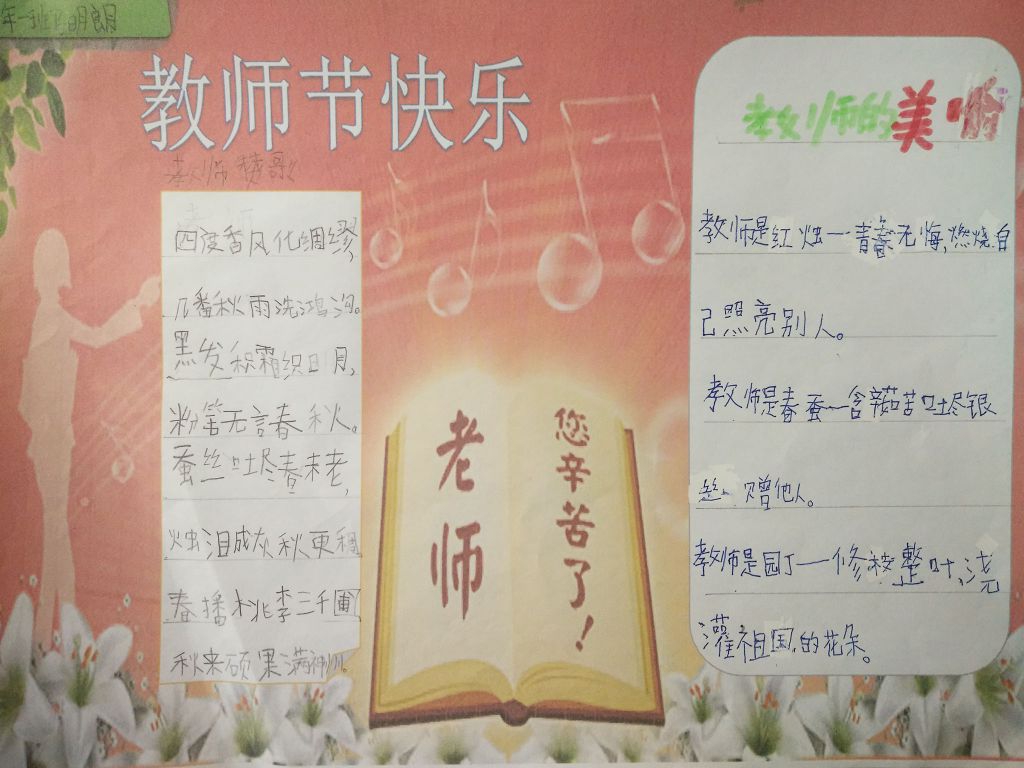 年一班
明朗
教师节快乐
教师赞歌
四度香风化绸缪,
几番秋雨洗鸿沟。
黑发积霜织日月,
粉笔无言春秋。
蚕丝吐尽春未老,
烛泪成灰秋更稠
春播桃李三千圃
秋来硕果满神州。
老师
您辛苦了!
教师的美喻
教师是红烛——青春无悔,燃烧自
己照亮别人。
教师是春蚕—含辛茹苦吐尽银
丝、赠他人。
教师是园丁—修枝整叶,浇
灌祖国的花朵。